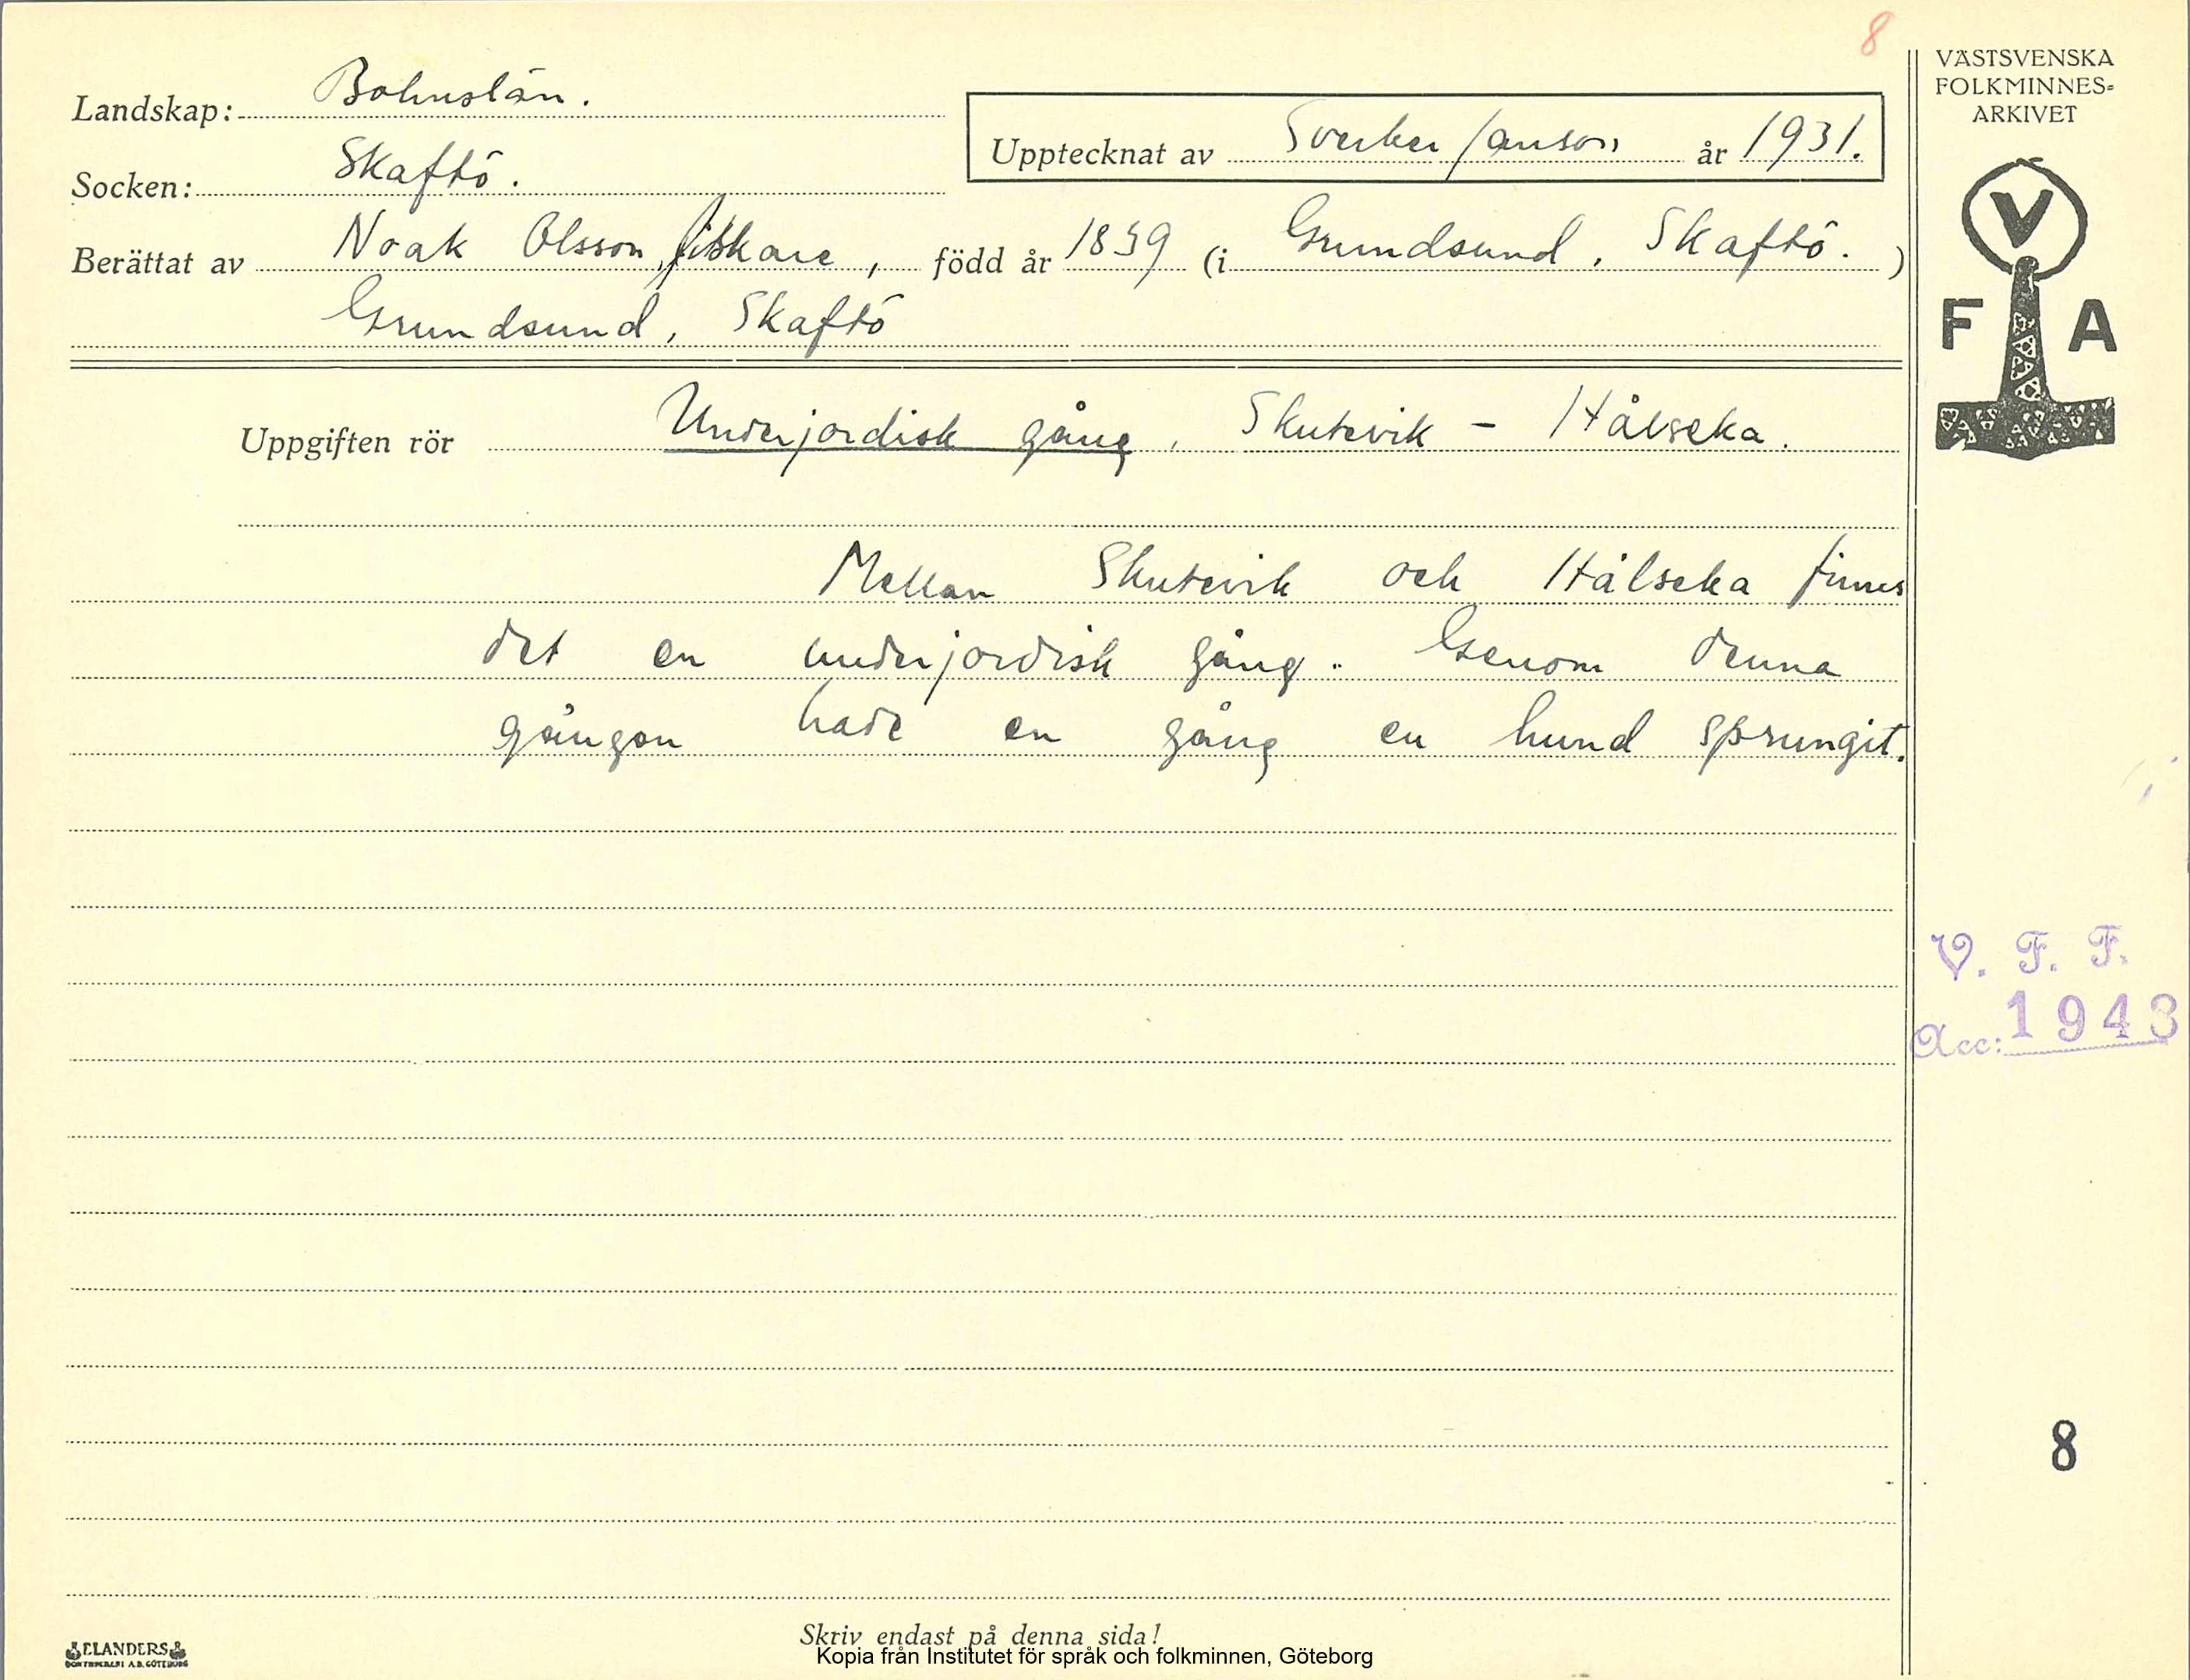 8
VÄSTSVENSKA
FOLKMINNES=
ARKIVET
Landskap: Bohuslän.
Upptecknat av Sverker Janson år 1931.
Socken: Skaftö.
Berättat av Noak Olsson, fiskare, född år 1859 (i Grundsund, Skaftö.)
Grundsund, Skaftö
V
F A
Uppgiften rör Underjordisk gång, Skutevik - Hålseka.
Mellan Skutevik och Hålseka finnes
det en underjordisk gång. Genom denna
gången hade en gång en hund sprungit.
V. F. F.
Acc: 1943
8
Skriv endast på denna sida!
ELANDERS
BOKTRYCKERI A.B. GÖTEBORG
Kopia från Institutet för språk och folkminnen, Göteborg